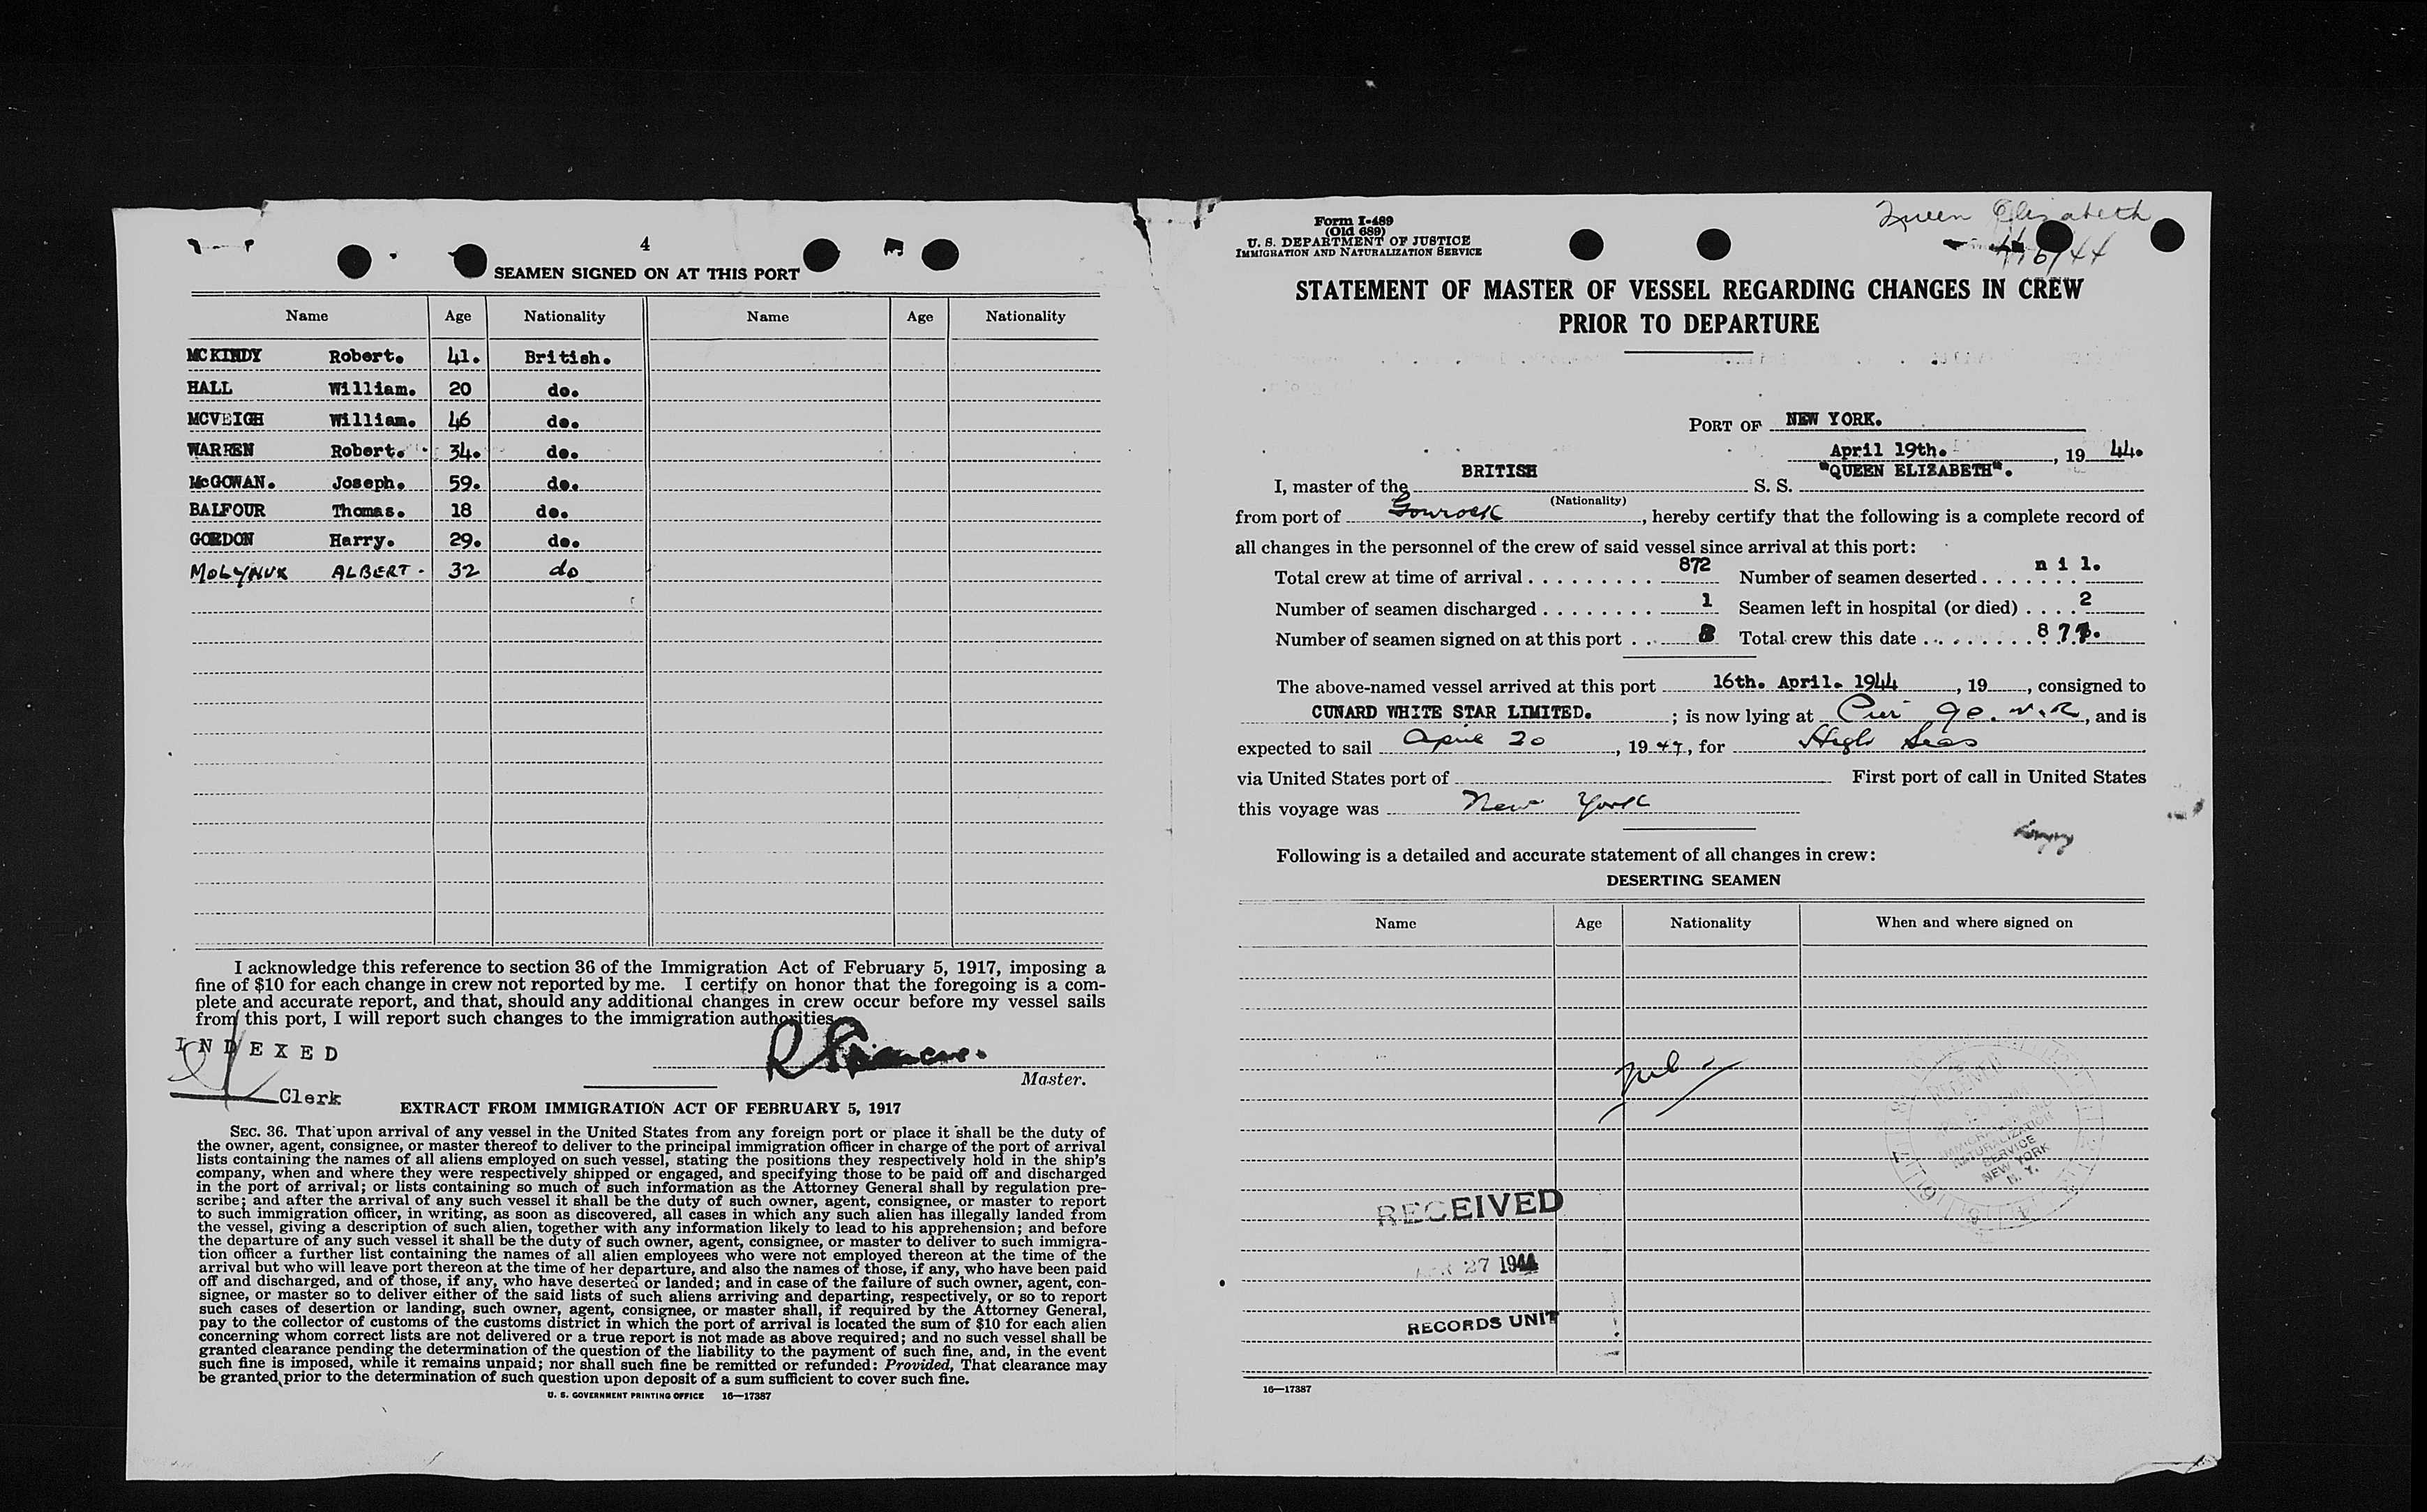 4
SEAMEN SIGNED ON AT THIS PORT
Name Age Nationality Name Age Nationality
MCKINDY Robert. 41. British.
HALL William. 20 do.
MCVEIGH William. 46 do.
WARREN Robert. 34. do.
McGOWAN. Joseph. 59. do.
BALFOUR Thomas. 18 do.
GORDON Harry. 29. do.
MOLYNUX ALBERT. 32 do
I acknowledge this reference to section 36 of the Immigration Act of February 5, 1917, imposing a
fine of $10 for each change in crew not reported by me. I certify on honor that the foregoing is a com-
plete and accurate report, and that, should any additional changes in crew occur before my vessel sails
from this port, I will report such changes to the immigration authorities.
INDEXED
Clerk
Master.
EXTRACT FROM IMMIGRATION ACT OF FEBRUARY 5, 1917
SEC. 36. That upon arrival of any vessel in the United States from any foreign port or place it shall be the duty of
the owner, agent, consignee, or master thereof to deliver to the principal immigration officer in charge of the port of arrival
lists containing the names of all aliens employed on such vessel, stating the positions they respectively hold in the ship's
company, when and where they were respectively shipped or engaged, and specifying those to be paid off and discharged
in the port of arrival; or lists containing so much of such information as the Attorney General shall by regulation pre-
scribe; and after the arrival of any such vessel it shall be the duty of such owner, agent, consignee, or master to report
to such immigration officer, in writing, as soon as discovered, all cases in which any such alien has illegally landed from
the vessel, giving a description of such alien, together with any information likely to lead to his apprehension; and before
the departure of any such vessel it shall be the duty of such owner, agent, consignee, or master to deliver to such immigra-
tion officer a further list containing the names of all alien employees who were not employed thereon at the time of the
arrival but who will leave port thereon at the time of her departure, and also the names of those, if any, who have been paid
off and discharged, and of those, if any, who have deserted or landed; and in case of the failure of such owner, agent, con-
signee, or master so to deliver either of the said lists of such aliens arriving and departing, respectively, or so to report
such cases of desertion or landing, such owner, agent, consignee, or master shall, if required by the Attorney General,
pay to the collector of customs of the customs district in which the port of arrival is located the sum of $10 for each alien
concerning whom correct lists are not delivered or a true report is not made as above required; and no such vessel shall be
granted clearance pending the determination of the question of the liability to the payment of such fine, and, in the event
such fine is imposed, while it remains unpaid; nor shall such fine be remitted or refunded: Provided, That clearance may
be granted prior to the determination of such question upon deposit of a sum sufficient to cover such fine.
U. S. GOVERNMENT PRINTING OFFICE 16—17387
Form I-489
(Old 689)
U. S. DEPARTMENT OF JUSTICE
IMMIGRATION AND NATURALIZATION SERVICE
Queen Elizabeth
STATEMENT OF MASTER OF VESSEL REGARDING CHANGES IN CREW
PRIOR TO DEPARTURE
PORT OF NEW YORK.
April 19th., 19 44.
I, master of the BRITISH S. S. "QUEEN ELIZABETH".
(Nationality)
from port of Gourock, hereby certify that the following is a complete record of
all changes in the personnel of the crew of said vessel since arrival at this port:
Total crew at time of arrival . . . . . . . . . 872 Number of seamen deserted . . . . . . . n i l.
Number of seamen discharged . . . . . . . . 1 Seamen left in hospital (or died) . . . . 2
Number of seamen signed on at this port . . 8 Total crew this date . . . . . . . . . 877.
The above-named vessel arrived at this port 16th. April. 1944, 19, consigned to
CUNARD WHITE STAR LIMITED. ; is now lying at Pier 90. N.R, and is
expected to sail April 20, 1944, for High Seas
via United States port of First port of call in United States
this voyage was New York
Following is a detailed and accurate statement of all changes in crew:
DESERTING SEAMEN
Name Age Nationality When and where signed on
nil
RECEIVED
IMMIGRATION AND
NATURALIZATION
SERVICE
NEW YORK
N. Y.
RECEIVED
APR 27 1944
RECORDS UNIT
16—17387